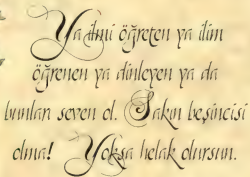 Ya ilmi öğreten ya ilim
öğrenen ya dinleyen ya da
bunları seven ol. Sakın beşincisi
olma! Yoksa helak olursun.